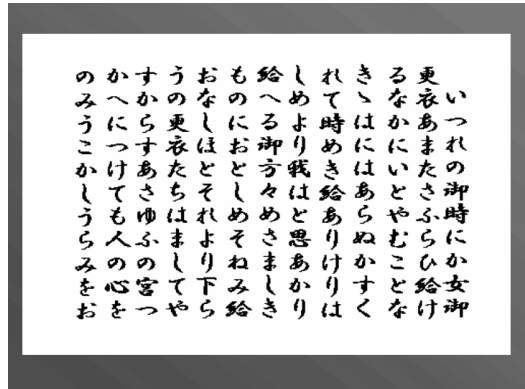 いつれの御時にか女御
更衣あまたさふらひ給け
るなかにいとやむことな
きゝはにはあらぬかすく
れて時めき給ありけりは
しめより我はと思あかり
給へる御方々めさましき
ものにおとしめそねみ給
おなしほとそれより下ら
うの更衣たちはましてや
すからすあさゆふの宮つ
かへにつけても人の心を
のみうこかしうらみをお